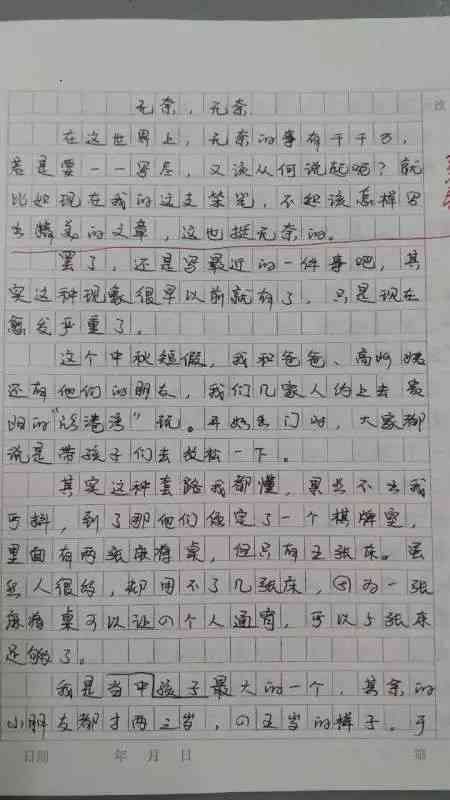 无奈，无奈
在这世界上，无奈的事有千千万，
若是要一一写尽，又该从何说起呢？就
比如现在我的这支笨笔，不知该怎样写
出精美的文章，这也挺无奈的。
罢了，还是写最近的一件事吧，其
实这种现象很早以前就有了，只是现在
愈发严重了。
这个中秋短假，我和爸爸、高妈
还有他们的朋友，我们几家人约上去
的“港湾”玩。开始出门时，大家都
说是带孩子们去放松一下。
其实这种套路我都懂，果然不出我
所料，到了那他们便定了一个棋牌室，
里面有两张麻将桌，但只有五张床。虽
然人很多，却用不了几张床，因为一张
麻将桌可以让4个人通宵，所以5张床
足够了。
我是当中孩子最大的一个，其余的
小朋友都才两三岁，四五岁的样子。于
日期 年 月 日 第